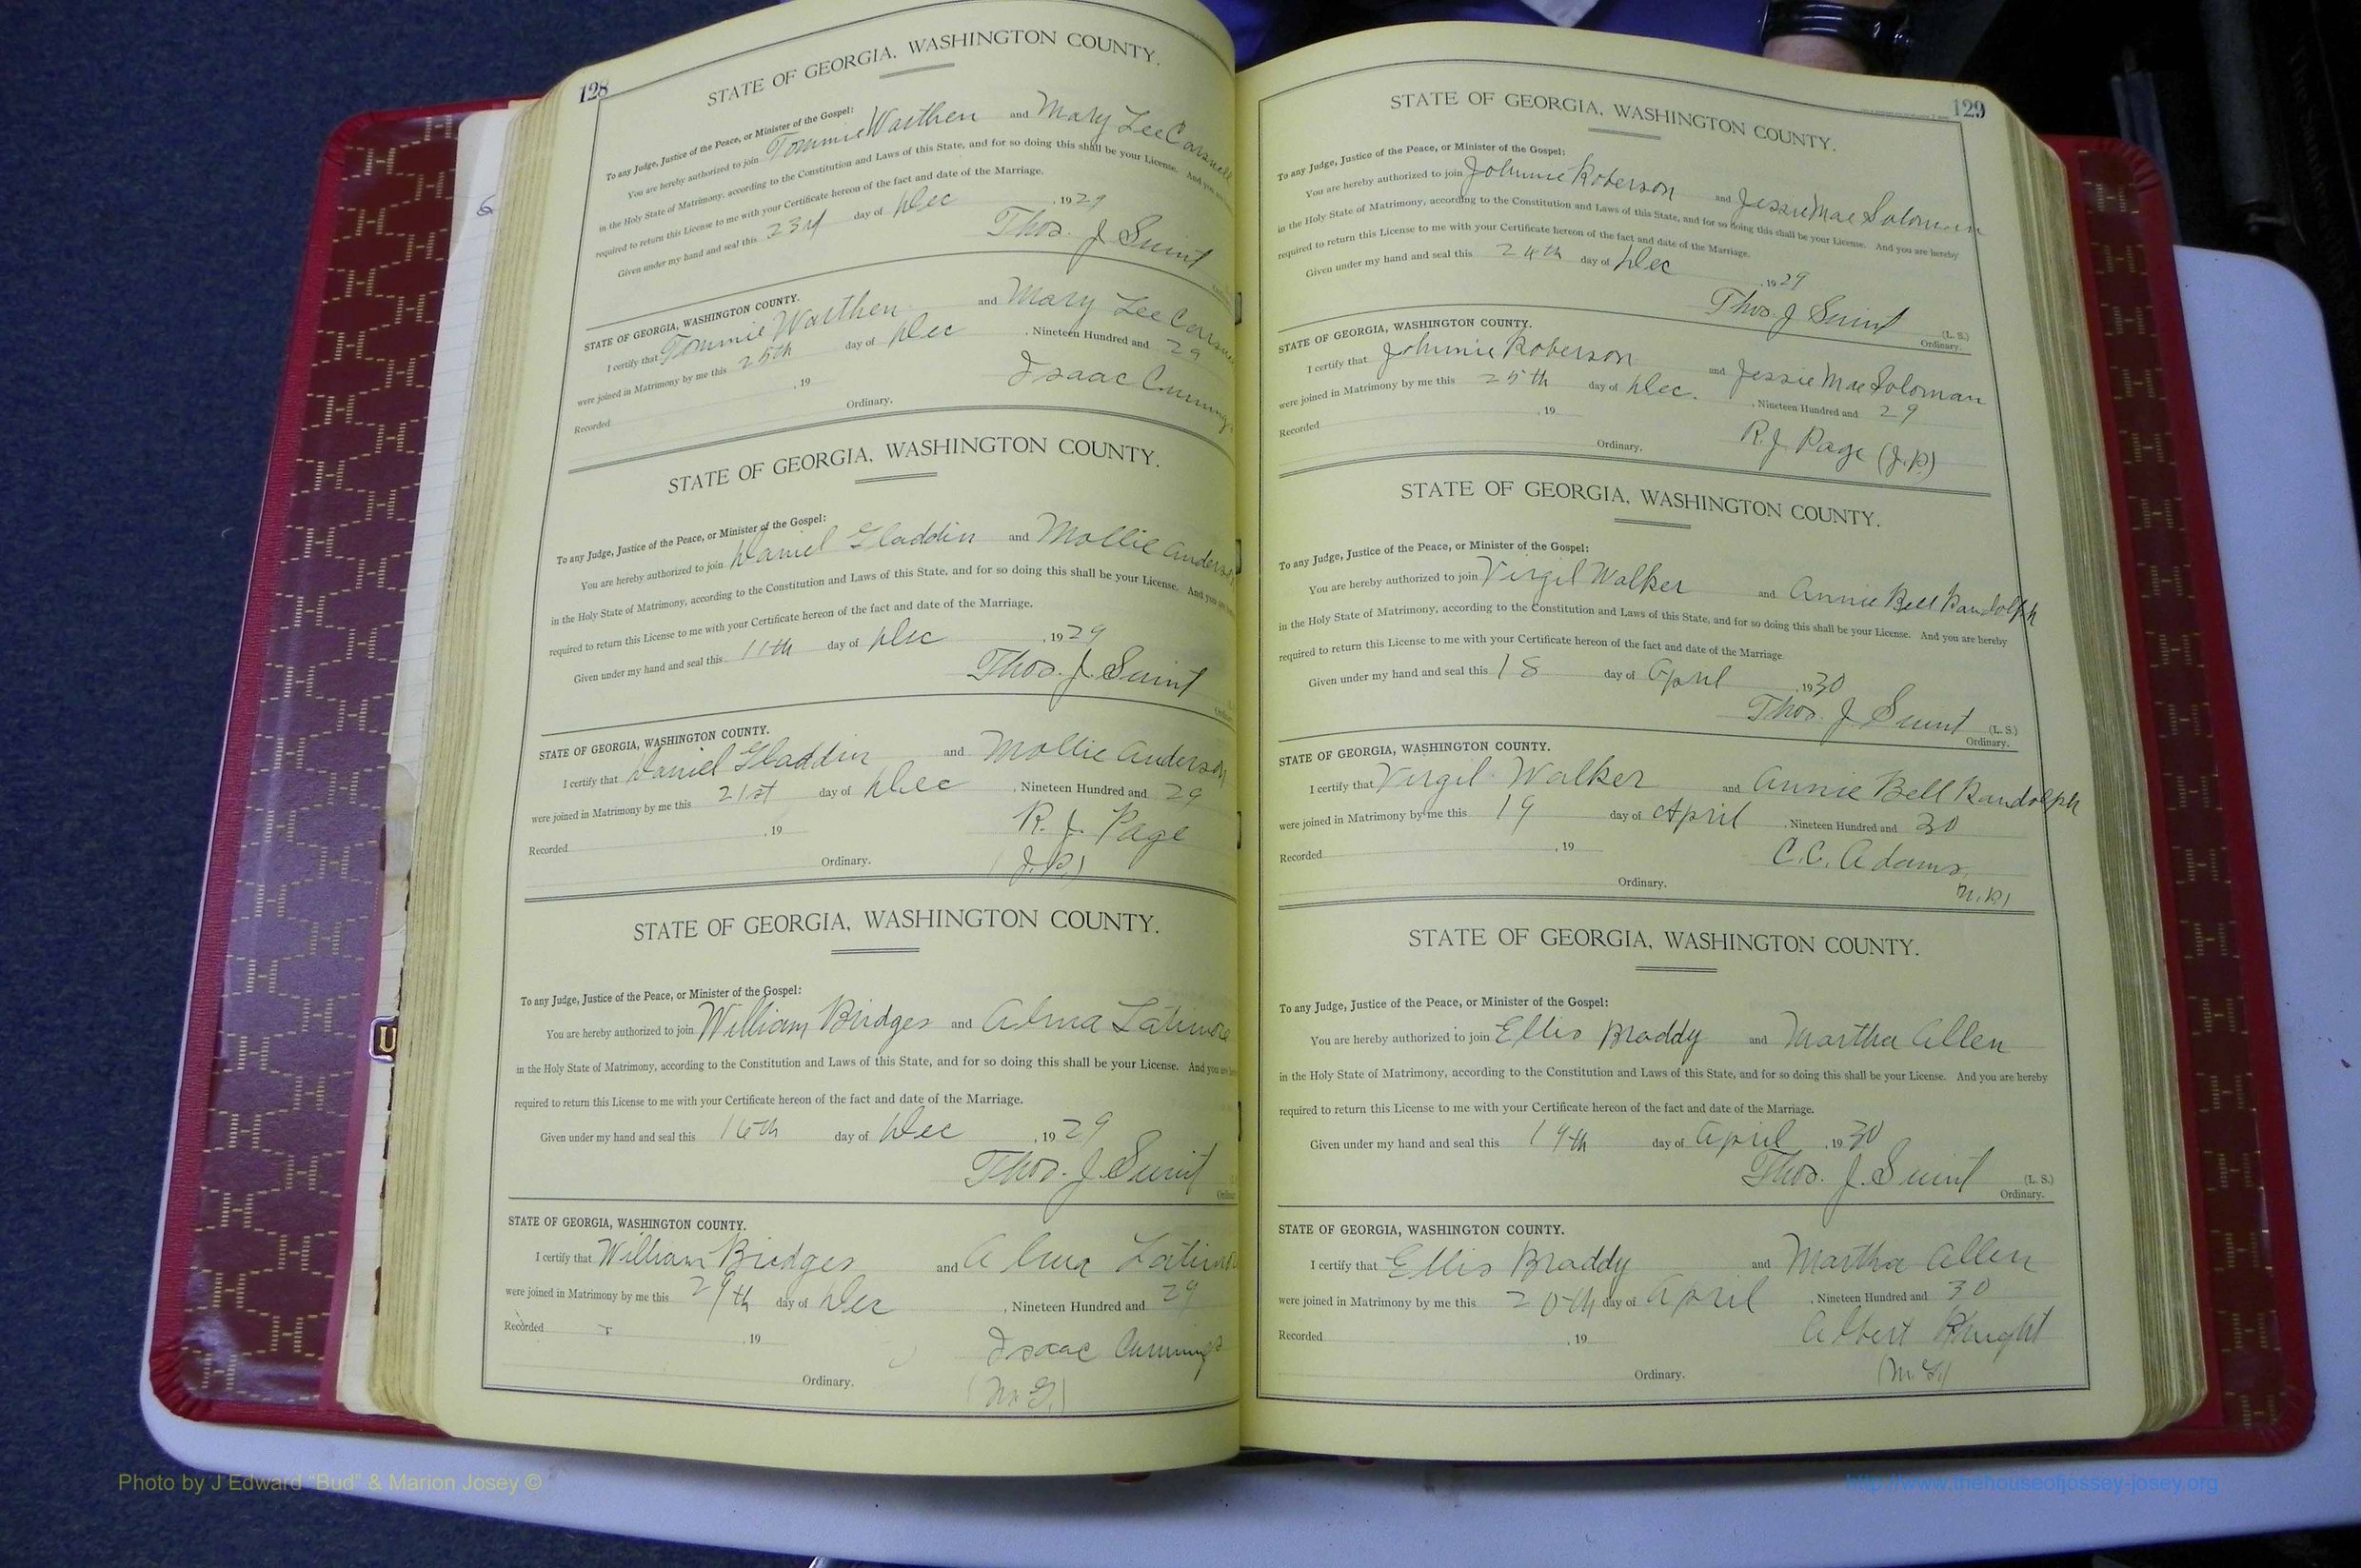 128
STATE OF GEORGIA, WASHINGTON COUNTY.
To any Judge, Justice of the Peace, or Minister of the Gospel:
You are hereby authorized to join Tommie Warthen and Mary Lee Carswell
in the Holy State of Matrimony, according to the Constitution and Laws of this State, and for so doing this shall be your License. And you are
required to return this License to me with your Certificate hereon of the fact and date of the Marriage.
Given under my hand and seal this 23rd day of Dec , 1929
Thos. J. Swint
STATE OF GEORGIA, WASHINGTON COUNTY.
I certify that Tommie Warthen and Mary Lee Carswell
were joined in Matrimony by me this 25th day of Dec , Nineteen Hundred and 29
Recorded , 19 Isaac Cummings
Ordinary.
STATE OF GEORGIA, WASHINGTON COUNTY.
To any Judge, Justice of the Peace, or Minister of the Gospel:
You are hereby authorized to join Daniel Gladdin and Mollie Anderson
in the Holy State of Matrimony, according to the Constitution and Laws of this State, and for so doing this shall be your License. And you are
required to return this License to me with your Certificate hereon of the fact and date of the Marriage.
Given under my hand and seal this 11th day of Dec , 1929
Thos. J. Swint
STATE OF GEORGIA, WASHINGTON COUNTY.
I certify that Daniel Gladdin and Mollie Anderson
were joined in Matrimony by me this 21st day of Dec , Nineteen Hundred and 29
Recorded , 19 R. J. Page
Ordinary. (J.P.)
STATE OF GEORGIA, WASHINGTON COUNTY.
To any Judge, Justice of the Peace, or Minister of the Gospel:
You are hereby authorized to join William Bridges and Alma Latimore
in the Holy State of Matrimony, according to the Constitution and Laws of this State, and for so doing this shall be your License. And you are
required to return this License to me with your Certificate hereon of the fact and date of the Marriage.
Given under my hand and seal this 16th day of Dec , 1929
Thos. J. Swint
STATE OF GEORGIA, WASHINGTON COUNTY.
I certify that William Bridges and Alma Latimo
were joined in Matrimony by me this 29th day of Dec , Nineteen Hundred and 29
Recorded , 19 Isaac Cummings
Ordinary. (M.G.)
129
STATE OF GEORGIA, WASHINGTON COUNTY.
To any Judge, Justice of the Peace, or Minister of the Gospel:
You are hereby authorized to join Johnnie Roberson and Jessie Mae Soloman
in the Holy State of Matrimony, according to the Constitution and Laws of this State, and for so doing this shall be your License. And you are hereby
required to return this License to me with your Certificate hereon of the fact and date of the Marriage.
Given under my hand and seal this 24th day of Dec , 1929
Thos. J Swint (L. S.)
Ordinary.
STATE OF GEORGIA, WASHINGTON COUNTY.
I certify that Johnnie Roberson and Jessie Mae Soloman
were joined in Matrimony by me this 25th day of Dec. , Nineteen Hundred and 29
Recorded , 19 R. J. Page (J.P.)
Ordinary.
STATE OF GEORGIA, WASHINGTON COUNTY.
To any Judge, Justice of the Peace, or Minister of the Gospel:
You are hereby authorized to join Virgil Walker and Annie Bell Randolph
in the Holy State of Matrimony, according to the Constitution and Laws of this State, and for so doing this shall be your License. And you are hereby
required to return this License to me with your Certificate hereon of the fact and date of the Marriage.
Given under my hand and seal this 18 day of April , 1930
Thos. J Swint (L. S.)
Ordinary.
STATE OF GEORGIA, WASHINGTON COUNTY.
I certify that Virgil Walker and Annie Bell Randolph
were joined in Matrimony by me this 19 day of April , Nineteen Hundred and 30
Recorded , 19 C. C. Adams,
Ordinary. N.P.
STATE OF GEORGIA, WASHINGTON COUNTY.
To any Judge, Justice of the Peace, or Minister of the Gospel:
You are hereby authorized to join Ellis Braddy and Martha Allen
in the Holy State of Matrimony, according to the Constitution and Laws of this State, and for so doing this shall be your License. And you are hereby
required to return this License to me with your Certificate hereon of the fact and date of the Marriage.
Given under my hand and seal this 19th day of April , 1930
Thos. J. Swint (L. S.)
Ordinary.
STATE OF GEORGIA, WASHINGTON COUNTY.
I certify that Ellis Braddy and Martha Allen
were joined in Matrimony by me this 20th day of April , Nineteen Hundred and 30
Recorded , 19 Albert Knight
Ordinary. (M.G.)
Photo by J Edward "Bud" & Marion Josey ©
http://www.thehouseofjossey-josey.org